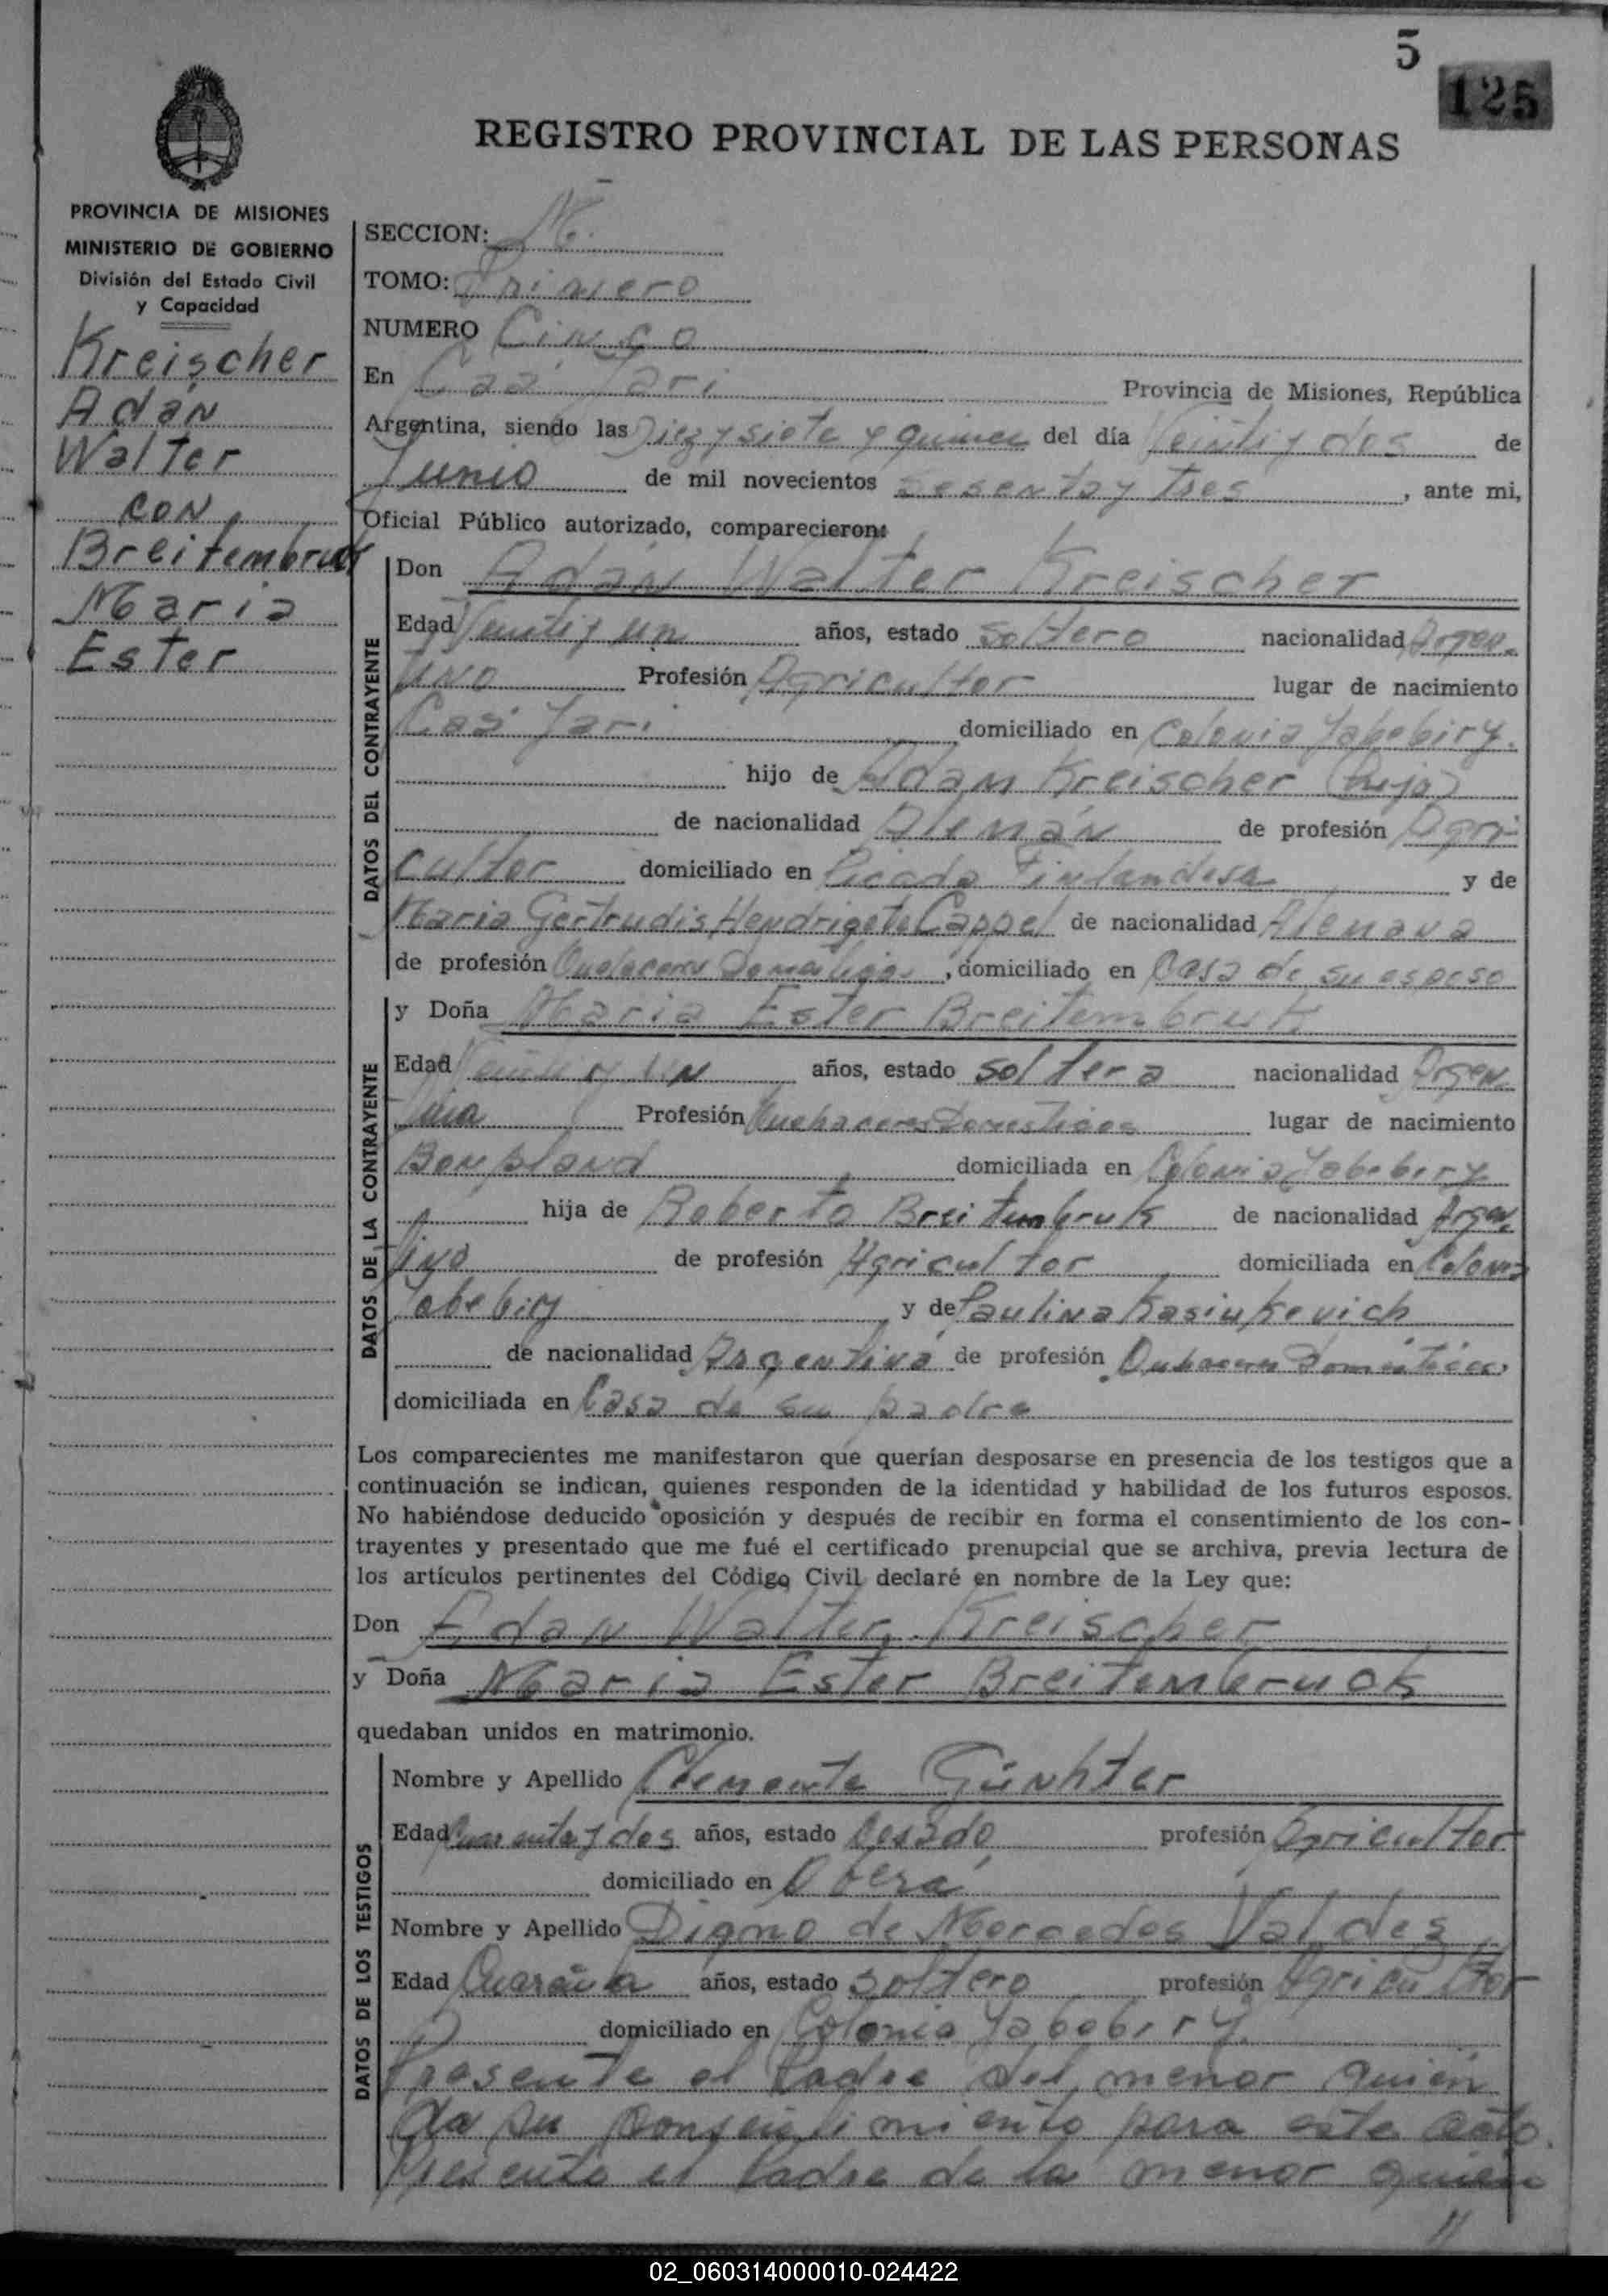 5
125
REGISTRO PROVINCIAL DE LAS PERSONAS
PROVINCIA DE MISIONES
MINISTERIO DE GOBIERNO
División del Estado Civil
y Capacidad
Kreischer
Adán
Walter
con
Breitembruk
Maria
Ester
SECCION: M.
TOMO: Primero
NUMERO Cinco
En Caá Yari Provincia de Misiones, República
Argentina, siendo las Diez y siete y quince del día Veinti y dos de
Junio de mil novecientos sesenta y tres, ante mi,
Oficial Público autorizado, comparecieron:
DATOS DEL CONTRAYENTE
Don Adán Walter Kreischer
Edad Veinti y un años, estado soltero nacionalidad Argen.
tino Profesión Agricultor lugar de nacimiento
Caá Yari domiciliado en Colonia Yabebiry.
hijo de Adam Kreischer (hijo)
de nacionalidad Alemán de profesión Agri-
cultor domiciliado en Picada Finlandesa y de
Maria Gertrudis Hendrigete Cappel de nacionalidad Alemana
de profesión, domiciliado en Casa de su esposo
DATOS DE LA CONTRAYENTE
y Doña Maria Ester Breitembruk
Edad Veinti y un años, estado soltera nacionalidad Argen
tina Profesión Quehaceres Domesticos lugar de nacimiento
Bonpland domiciliada en Colonia Yabebiry
hija de Roberto Breitembruk de nacionalidad Argen
tino de profesión Agricultor domiciliada en Colonia
Yabebiry y de Paulina Kasiukevich
de nacionalidad Argentina de profesión Domésticos
domiciliada en Casa de su padre
Los comparecientes me manifestaron que querían desposarse en presencia de los testigos que a
continuación se indican, quienes responden de la identidad y habilidad de los futuros esposos.
No habiéndose deducido oposición y después de recibir en forma el consentimiento de los con-
trayentes y presentado que me fué el certificado prenupcial que se archiva, previa lectura de
los artículos pertinentes del Código Civil declaré en nombre de la Ley que:
Don Adan Walter Kreischer
y Doña Maria Ester Breitembruok
quedaban unidos en matrimonio.
DATOS DE LOS TESTIGOS
Nombre y Apellido Clemente Günhter
Edad Cuarenta y dos años, estado Casado profesión Agricultor
domiciliado en Oberá
Nombre y Apellido Digno de Mercedes Valdez
Edad Cuarenta años, estado soltero profesión Agricultor
domiciliado en Colonia Yabebiry
Presente el Padre del menor quién
da su consentimiento para este acto.
Presente el Padre de la menor quien
//
02_060314000010-024422